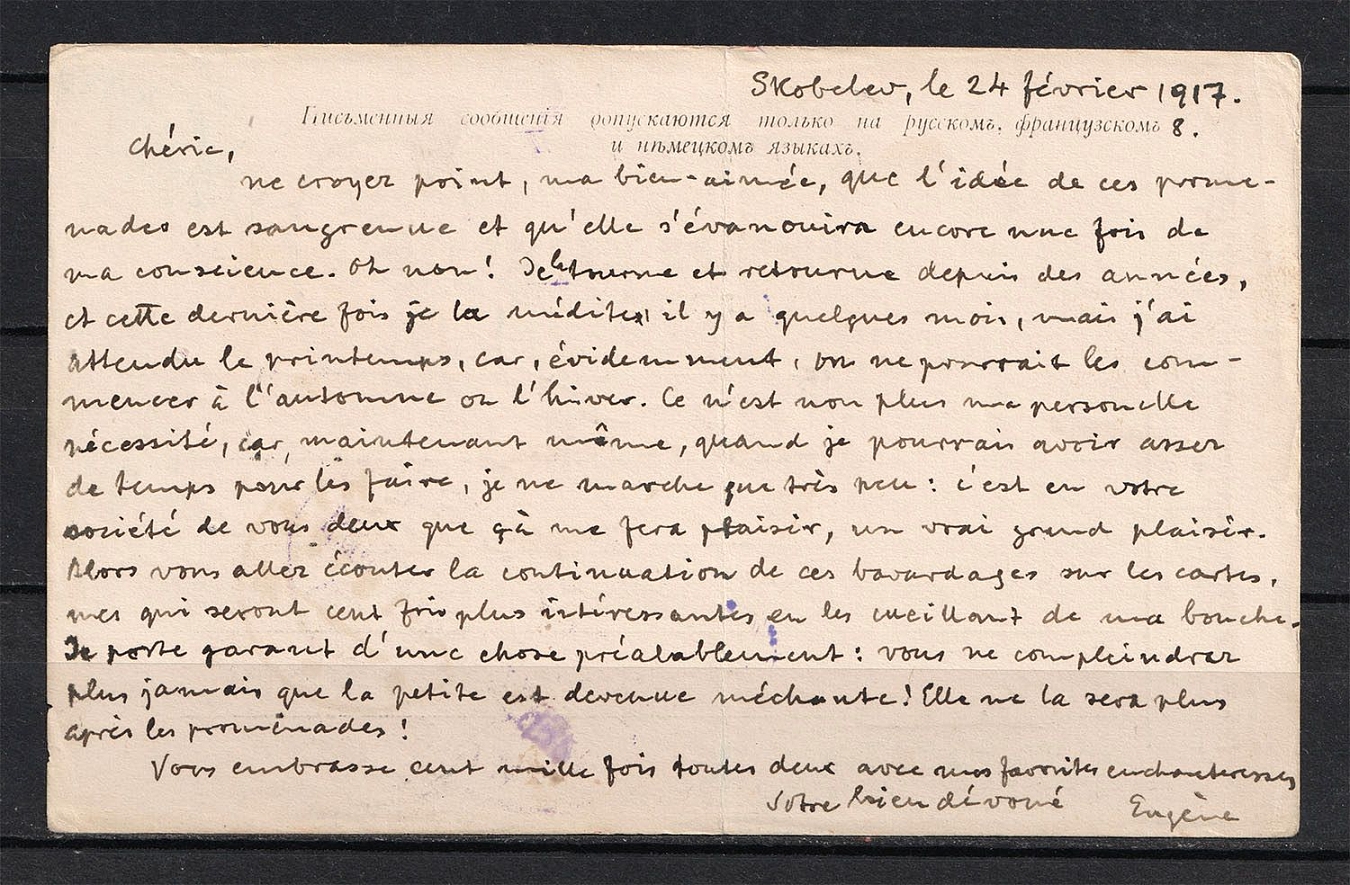 Skobelev, le 24 février 1917.
Письменныя сообщенія допускаются только на русскомъ, французскомъ 8.
и нѣмецкомъ языкахъ.
Chérie,
ne croyez point, ma bien-aimée, que l'idée de ces prome-
nades est saugrenue et qu'elle s'évanouira encore une fois de
ma conscience. Oh non! Je la tourne et retourne depuis des années,
et cette dernière fois je la médite, il y a quelques mois, mais j'ai
attendu le printemps, car, évidemment, on ne pourrait les com-
mencer à l'automne ou l'hiver. Ce n'est non plus ma personelle
nécessité, car, maintenant même, quand je pourrais avoir assez
de temps pour les faire, je ne marche que très peu: c'est en votre
société de vous deux que çà me fera plaisir, un vrai grand plaisir.
Alors vous allez écouter la continuation de ces bavardages sur les cartes,
mes qui seront cent fois plus intéressantes en les cueillant de ma bouche.
Je porte garant d'une chose préalablement: vous ne compleindrez
plus jamais que la petite est devenue méchante! Elle ne la sera plus
après les promenades!
Vous embrasse cent mille fois toutes deux avec mes favorites enchanteresses
Votre bien dévoué Eugène